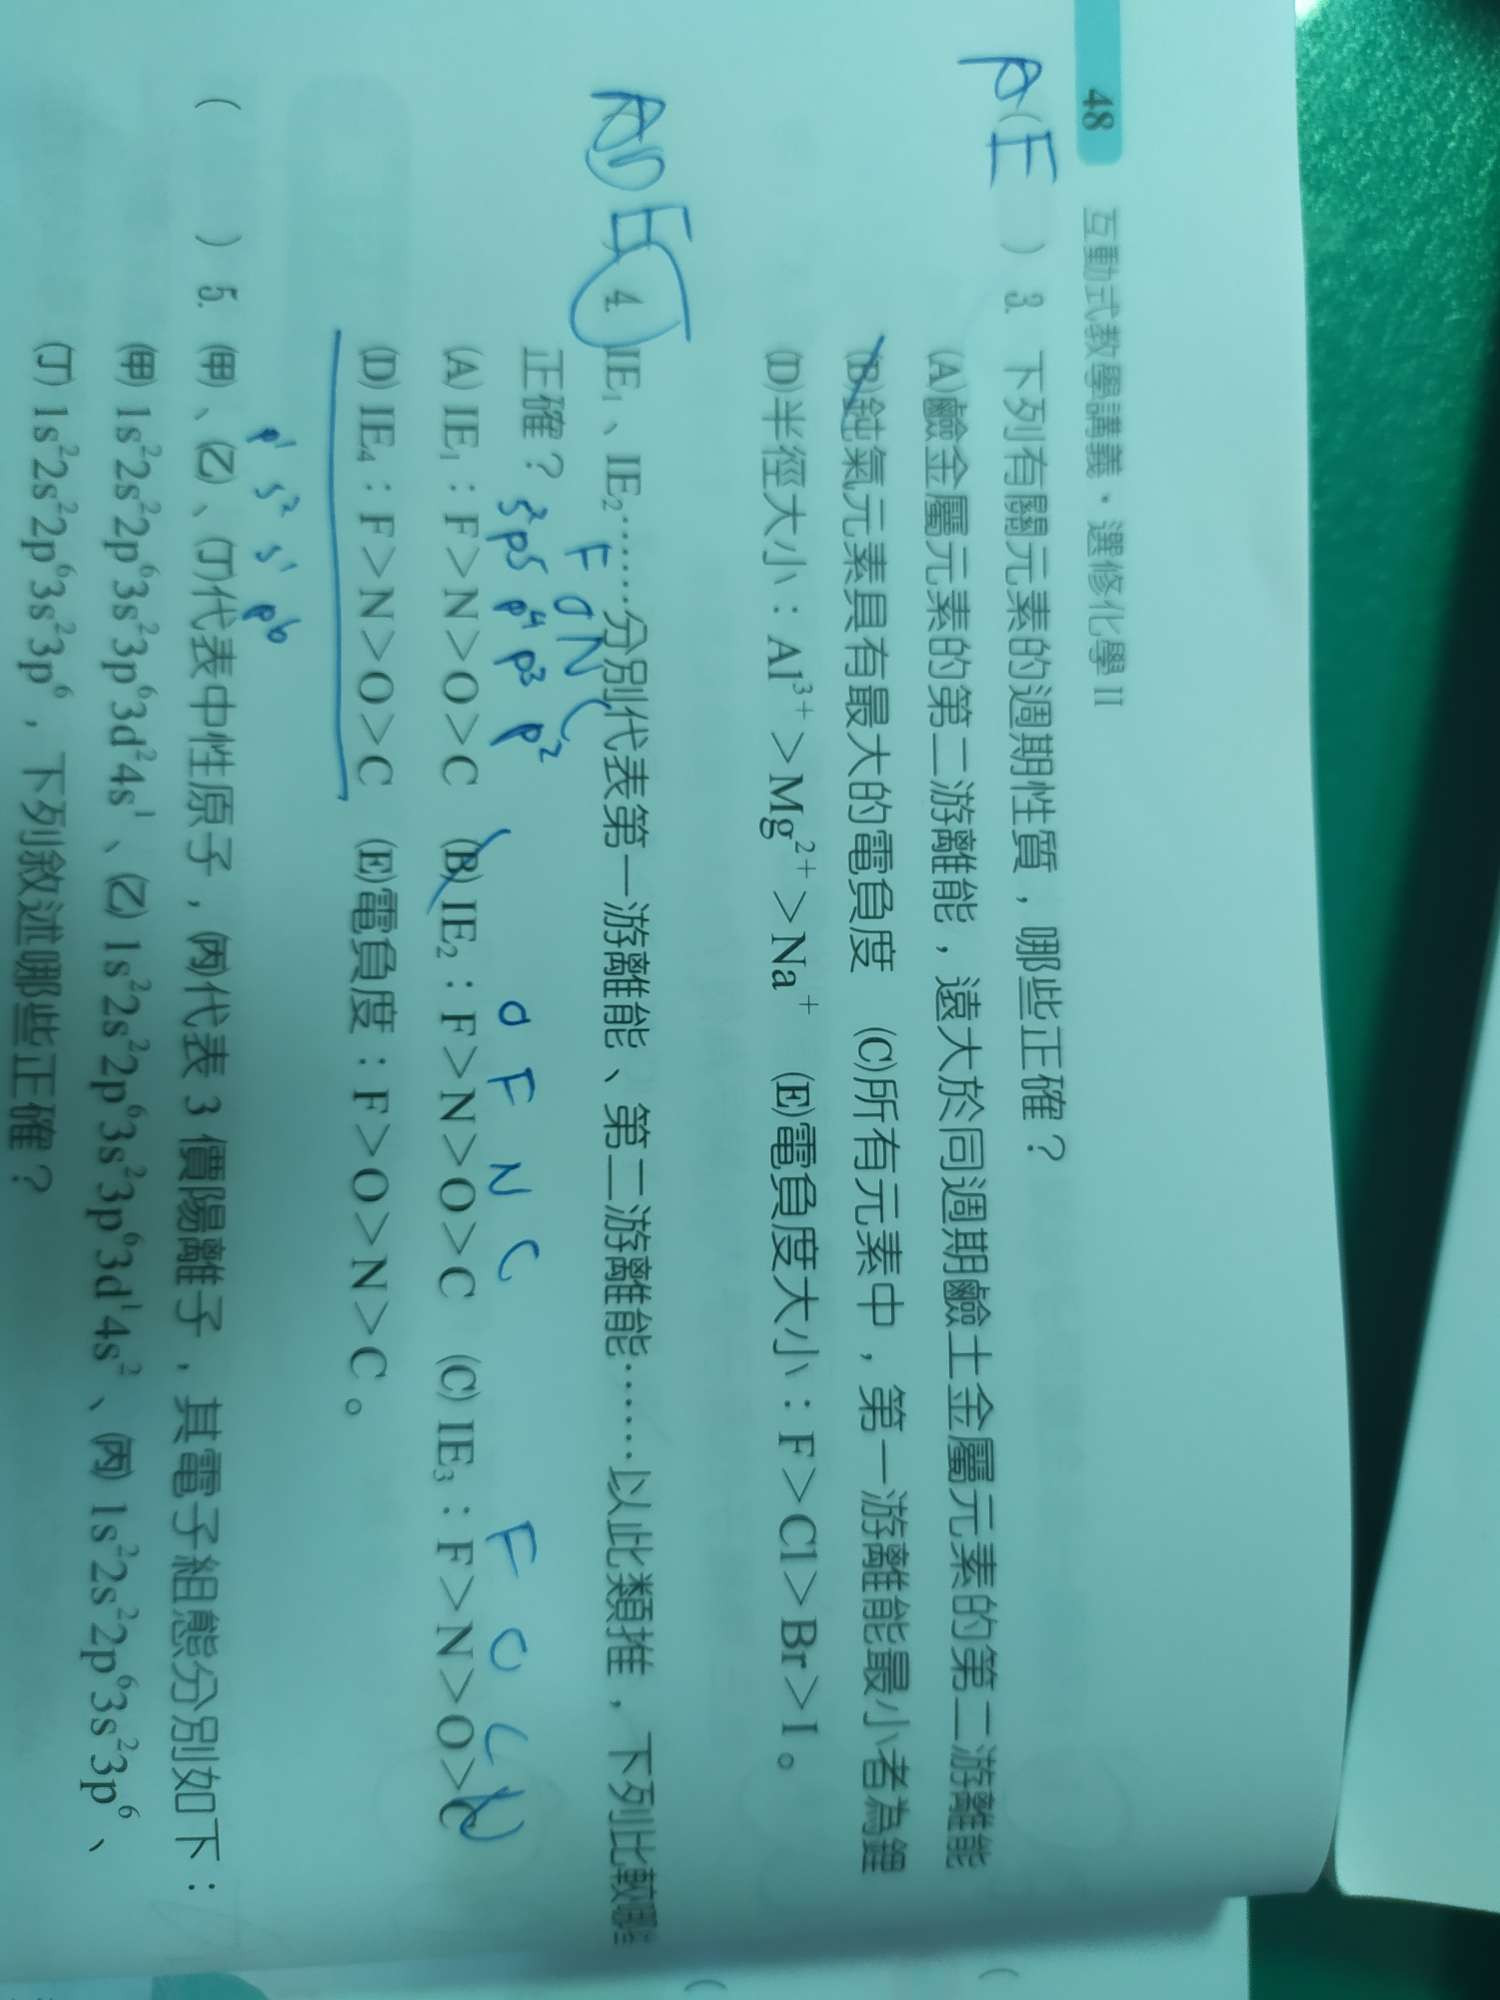 48 互動式教學講義・選修化學 II
A E
( ) 3. 下列有關元素的週期性質，哪些正確？
(A)鹼金屬元素的第二游離能，遠大於同週期鹼土金屬元素的第二游離能
(B)鈍氣元素具有最大的電負度 (C)所有元素中，第一游離能最小者為鋰
(D)半徑大小：Al³⁺＞Mg²⁺＞Na⁺ (E)電負度大小：F＞Cl＞Br＞I。
A D E
4. IE₁、IE₂……分別代表第一游離能、第二游離能……以此類推，下列比較哪些
F O N C
正確？
s² p5 p4 p3 p2
O F N C
F O C N
(A) IE₁：F＞N＞O＞C (B) IE₂：F＞N＞O＞C (C) IE₃：F＞N＞O＞C
(D) IE₄：F＞N＞O＞C (E)電負度：F＞O＞N＞C。
p¹ s² s¹ p6
( ) 5. (甲)、(乙)、(丁)代表中性原子，(丙)代表 3 價陽離子，其電子組態分別如下：
(甲) 1s²2s²2p⁶3s²3p⁶3d²4s¹、(乙) 1s²2s²2p⁶3s²3p⁶3d¹4s²、(丙) 1s²2s²2p⁶3s²3p⁶、
(丁) 1s²2s²2p⁶3s²3p⁶，下列敘述哪些正確？